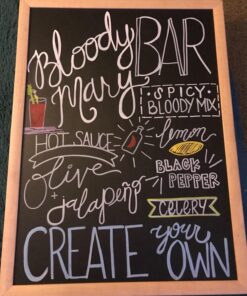 Bloody
Mary
BAR
SPICY
BLOODY MIX
HOT SAUCE
lemon
olive
+ jalapeño
BLACK
PEPPER
CELERY
CREATE your
OWN